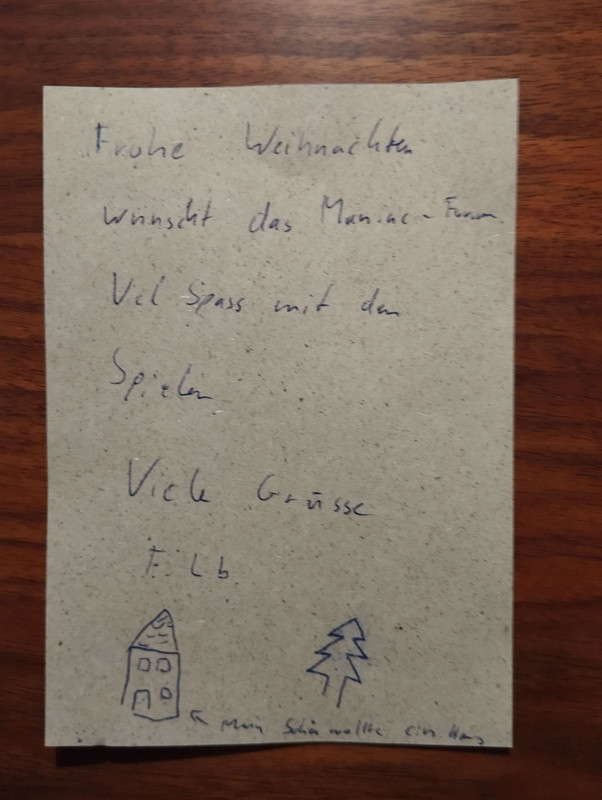 Frohe Weihnachten
wünscht das Maniac-Forum
Viel Spass mit den
Spielen
Viele Grüsse
Filb
Mein Sohn wollte ein Haus